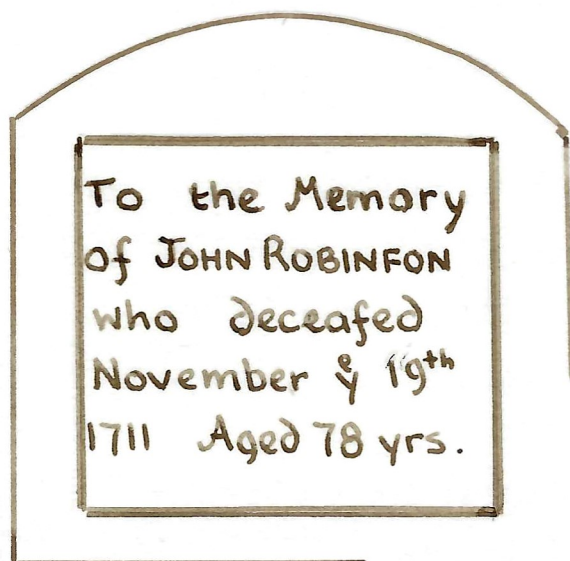 To the Memory
of JOHN ROBINFON
who deceafed
November yᵉ 19th
1711 Aged 78 yrs.